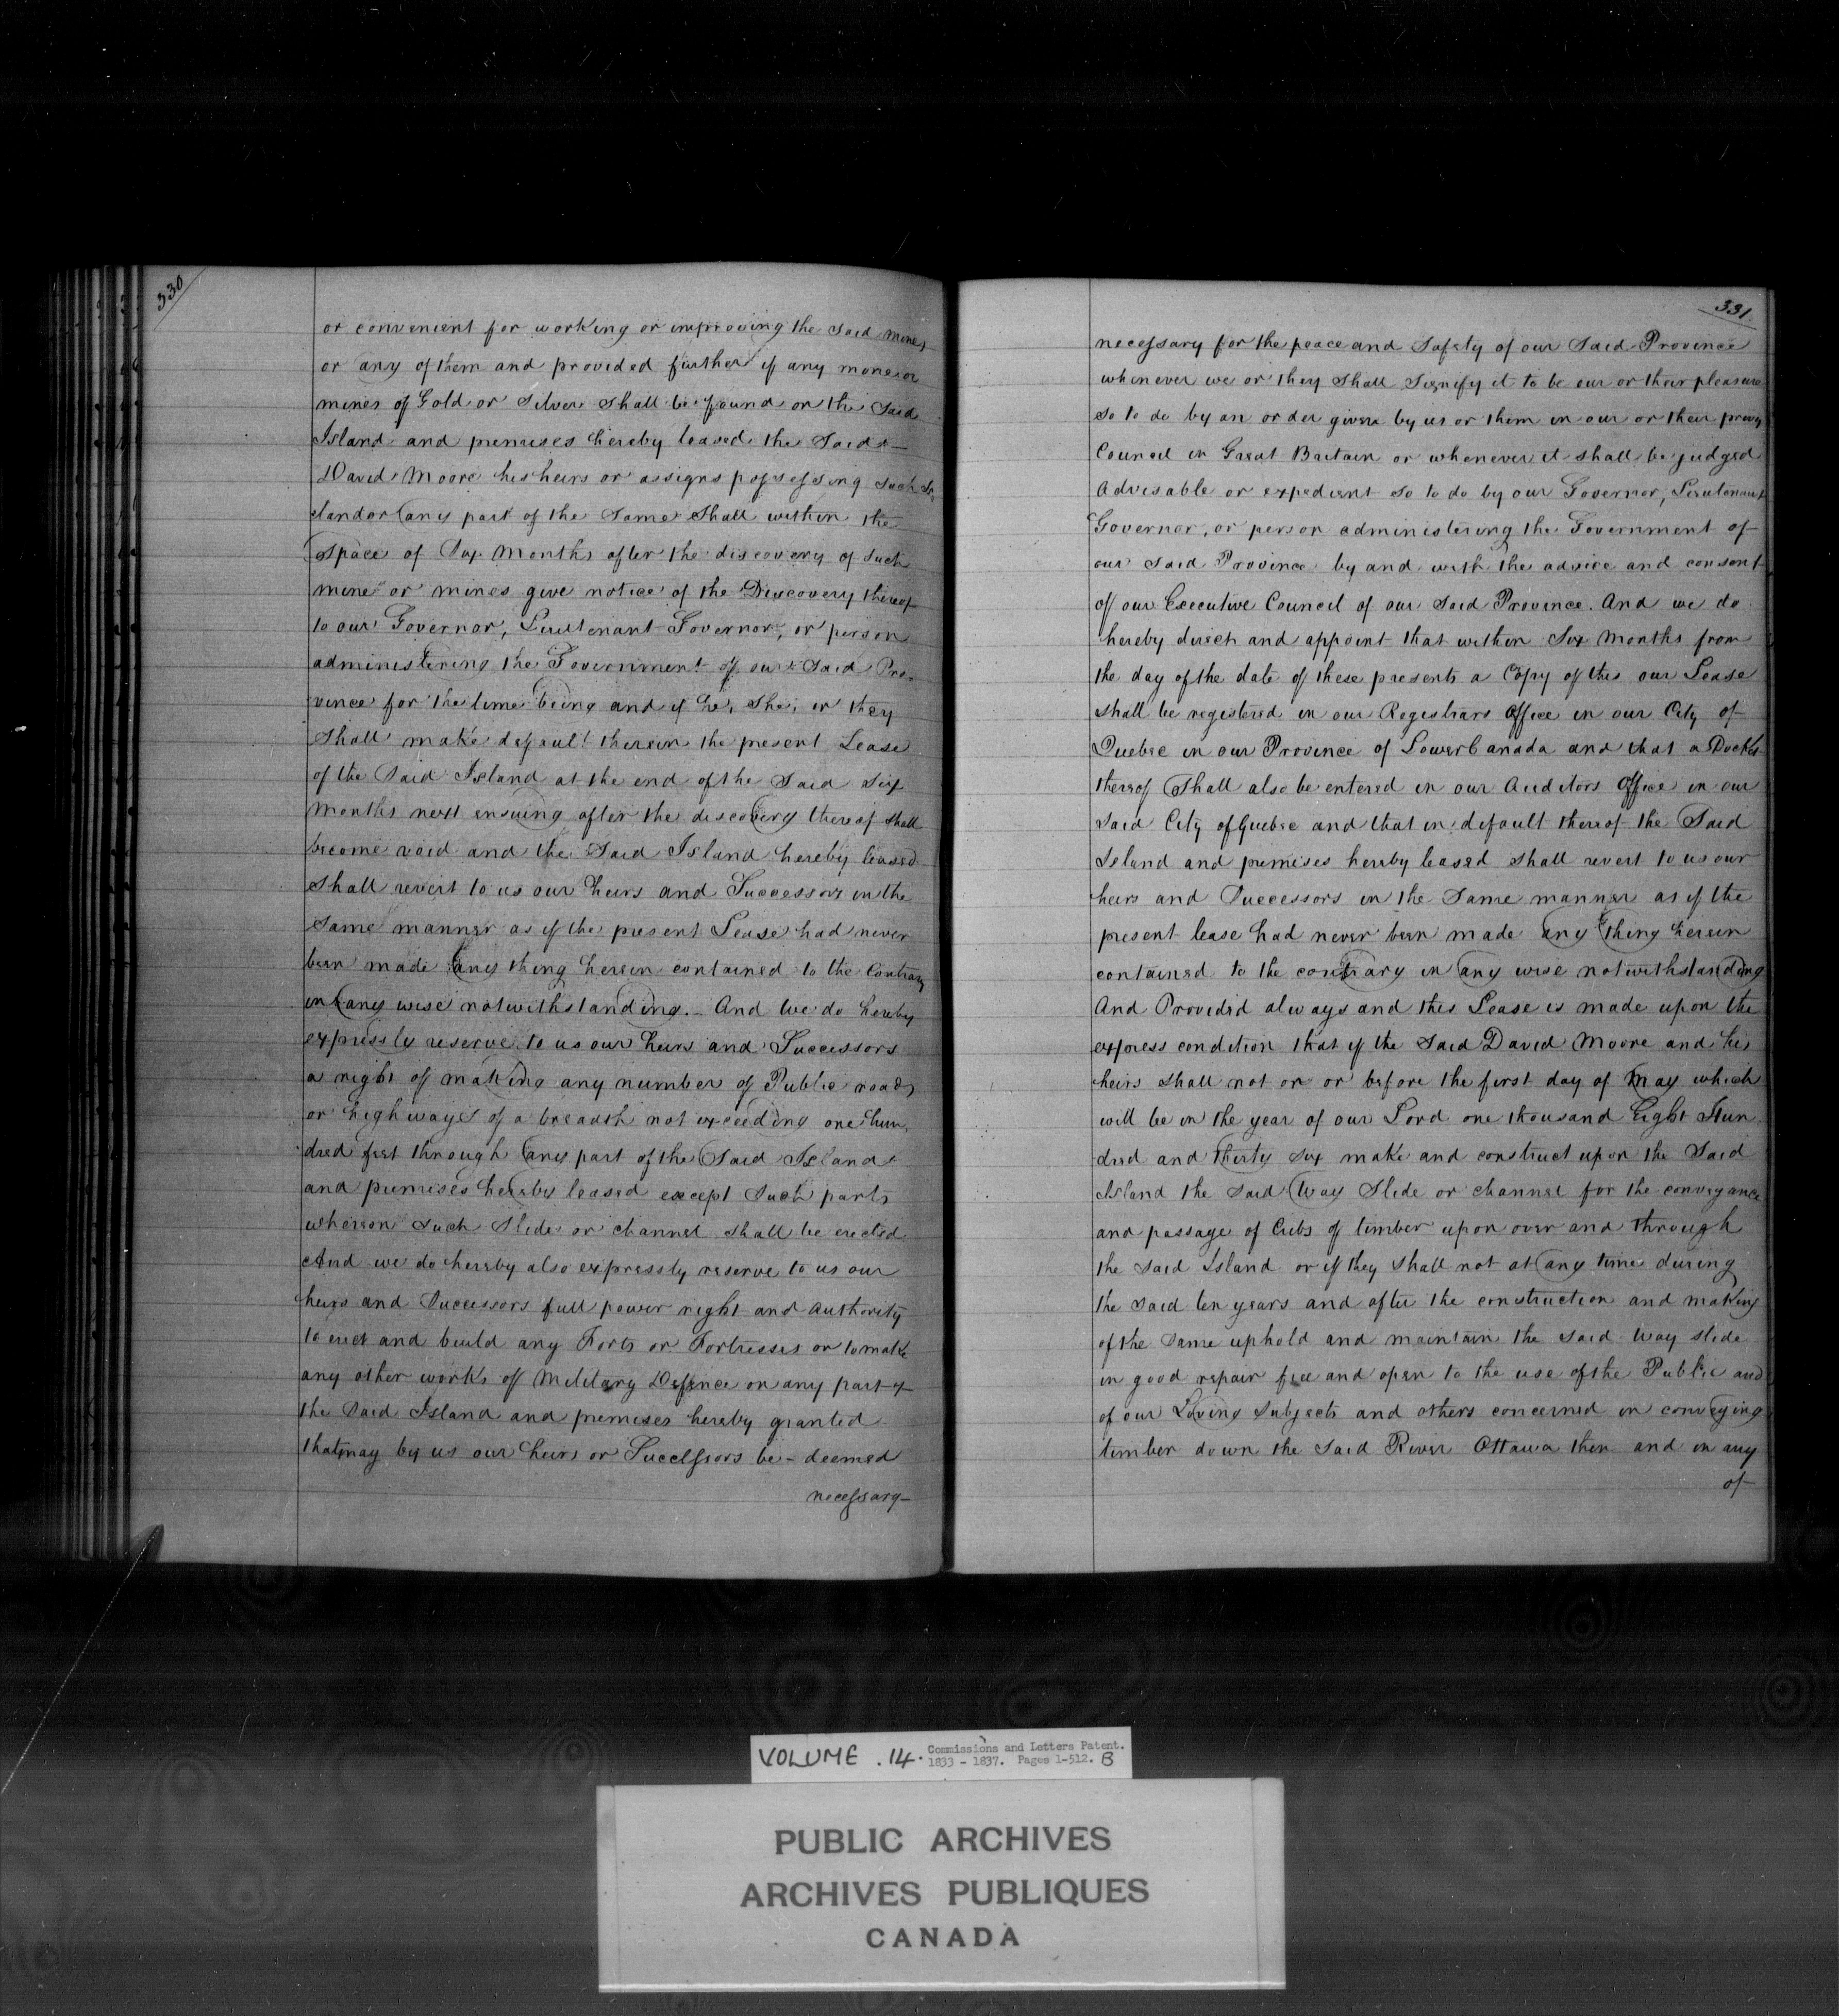 330
or convenient for working or improving the Said mines
or any of them and provided further if any mone or
mines of Gold or Silver Shall be found on the Said
Island and premises hereby leased the Said
David Moore his heirs or assigns possessing such Is
land or any part of the Same Shall within the
Space of Six Months after the discovery of Such
mine or mines give notice of the Discovery thereof
to our Governor, Lieutenant Governor, or person
administering the Government of our Said Pro-
vince for the time being and if he, She, or they
Shall make default therein the present Lease
of the Said Island at the end of the Said Six
Months next ensuing after the discovery thereof shall
become void and the Said Island hereby leased
Shall revert to us our heirs and Successors in the
Same manner as if the present Lease had never
been made any thing herein contained to the Contrary
in any wise notwithstanding. And We do hereby
expressly reserve to us our heirs and Successors
a right of making any number of Public roads
or highways of a breadth not exceeding one hun-
dred feet through any part of the Said Island
and premises hereby leased except Such parts
whereon Such Slide or channel Shall be erected
And we do hereby also expressly reserve to us our
heirs and Successors full power right and Authority
to erect and build any Forts or Fortresses or to make
any other works of Military Defence on any part of
the Said Island and premises hereby granted
that may by us our heirs or Successors be deemed
necessary
331
necessary for the peace and Safety of our Said Province
whenever we or they Shall Signify it to be our or their pleasure
So to do by an order given by us or them in our or their privy
Council in Great Britain or whenever it shall be judged
Advisable or expedient So to do by our Governor, Lieutenant
Governor, or person administering the Government of
our Said Province by and with the advice and consent
of our Executive Council of our Said Province. And we do
hereby direct and appoint that within Six Months from
the day of the date of these presents a Copy of this our Lease
shall be registered in our Registrars Office in our City of
Quebec in our Province of Lower Canada and that a Docket
thereof Shall also be entered in our Auditors Office in our
Said City of Quebec and that in default thereof the Said
Island and premises hereby leased Shall revert to us our
heirs and Successors in the Same manner as if the
present lease had never been made any thing herein
contained to the contrary in any wise notwithstanding
And Provided always and this Lease is made upon the
express condition that if the Said David Moore and his
heirs shall not on or before the first day of May which
will be in the year of our Lord one thousand Eight Hun
dred and thirty Six make and construct upon the Said
Island the Said Way Slide or channel for the conveyance
and passage of Cribs of timber upon over and through
the Said Island or if they Shall not at any time during
the said ten years and after the construction and making
of the Same uphold and maintain the said Way Slide
in good repair free and open to the use of the Public and
of our Loving Subjects and others concerned in conveying
timber down the Said River Ottawa then and in any
of
VOLUME .14. Commissions and Letters Patent.
1833 - 1837. Pages 1-512. B
PUBLIC ARCHIVES
ARCHIVES PUBLIQUES
CANADA